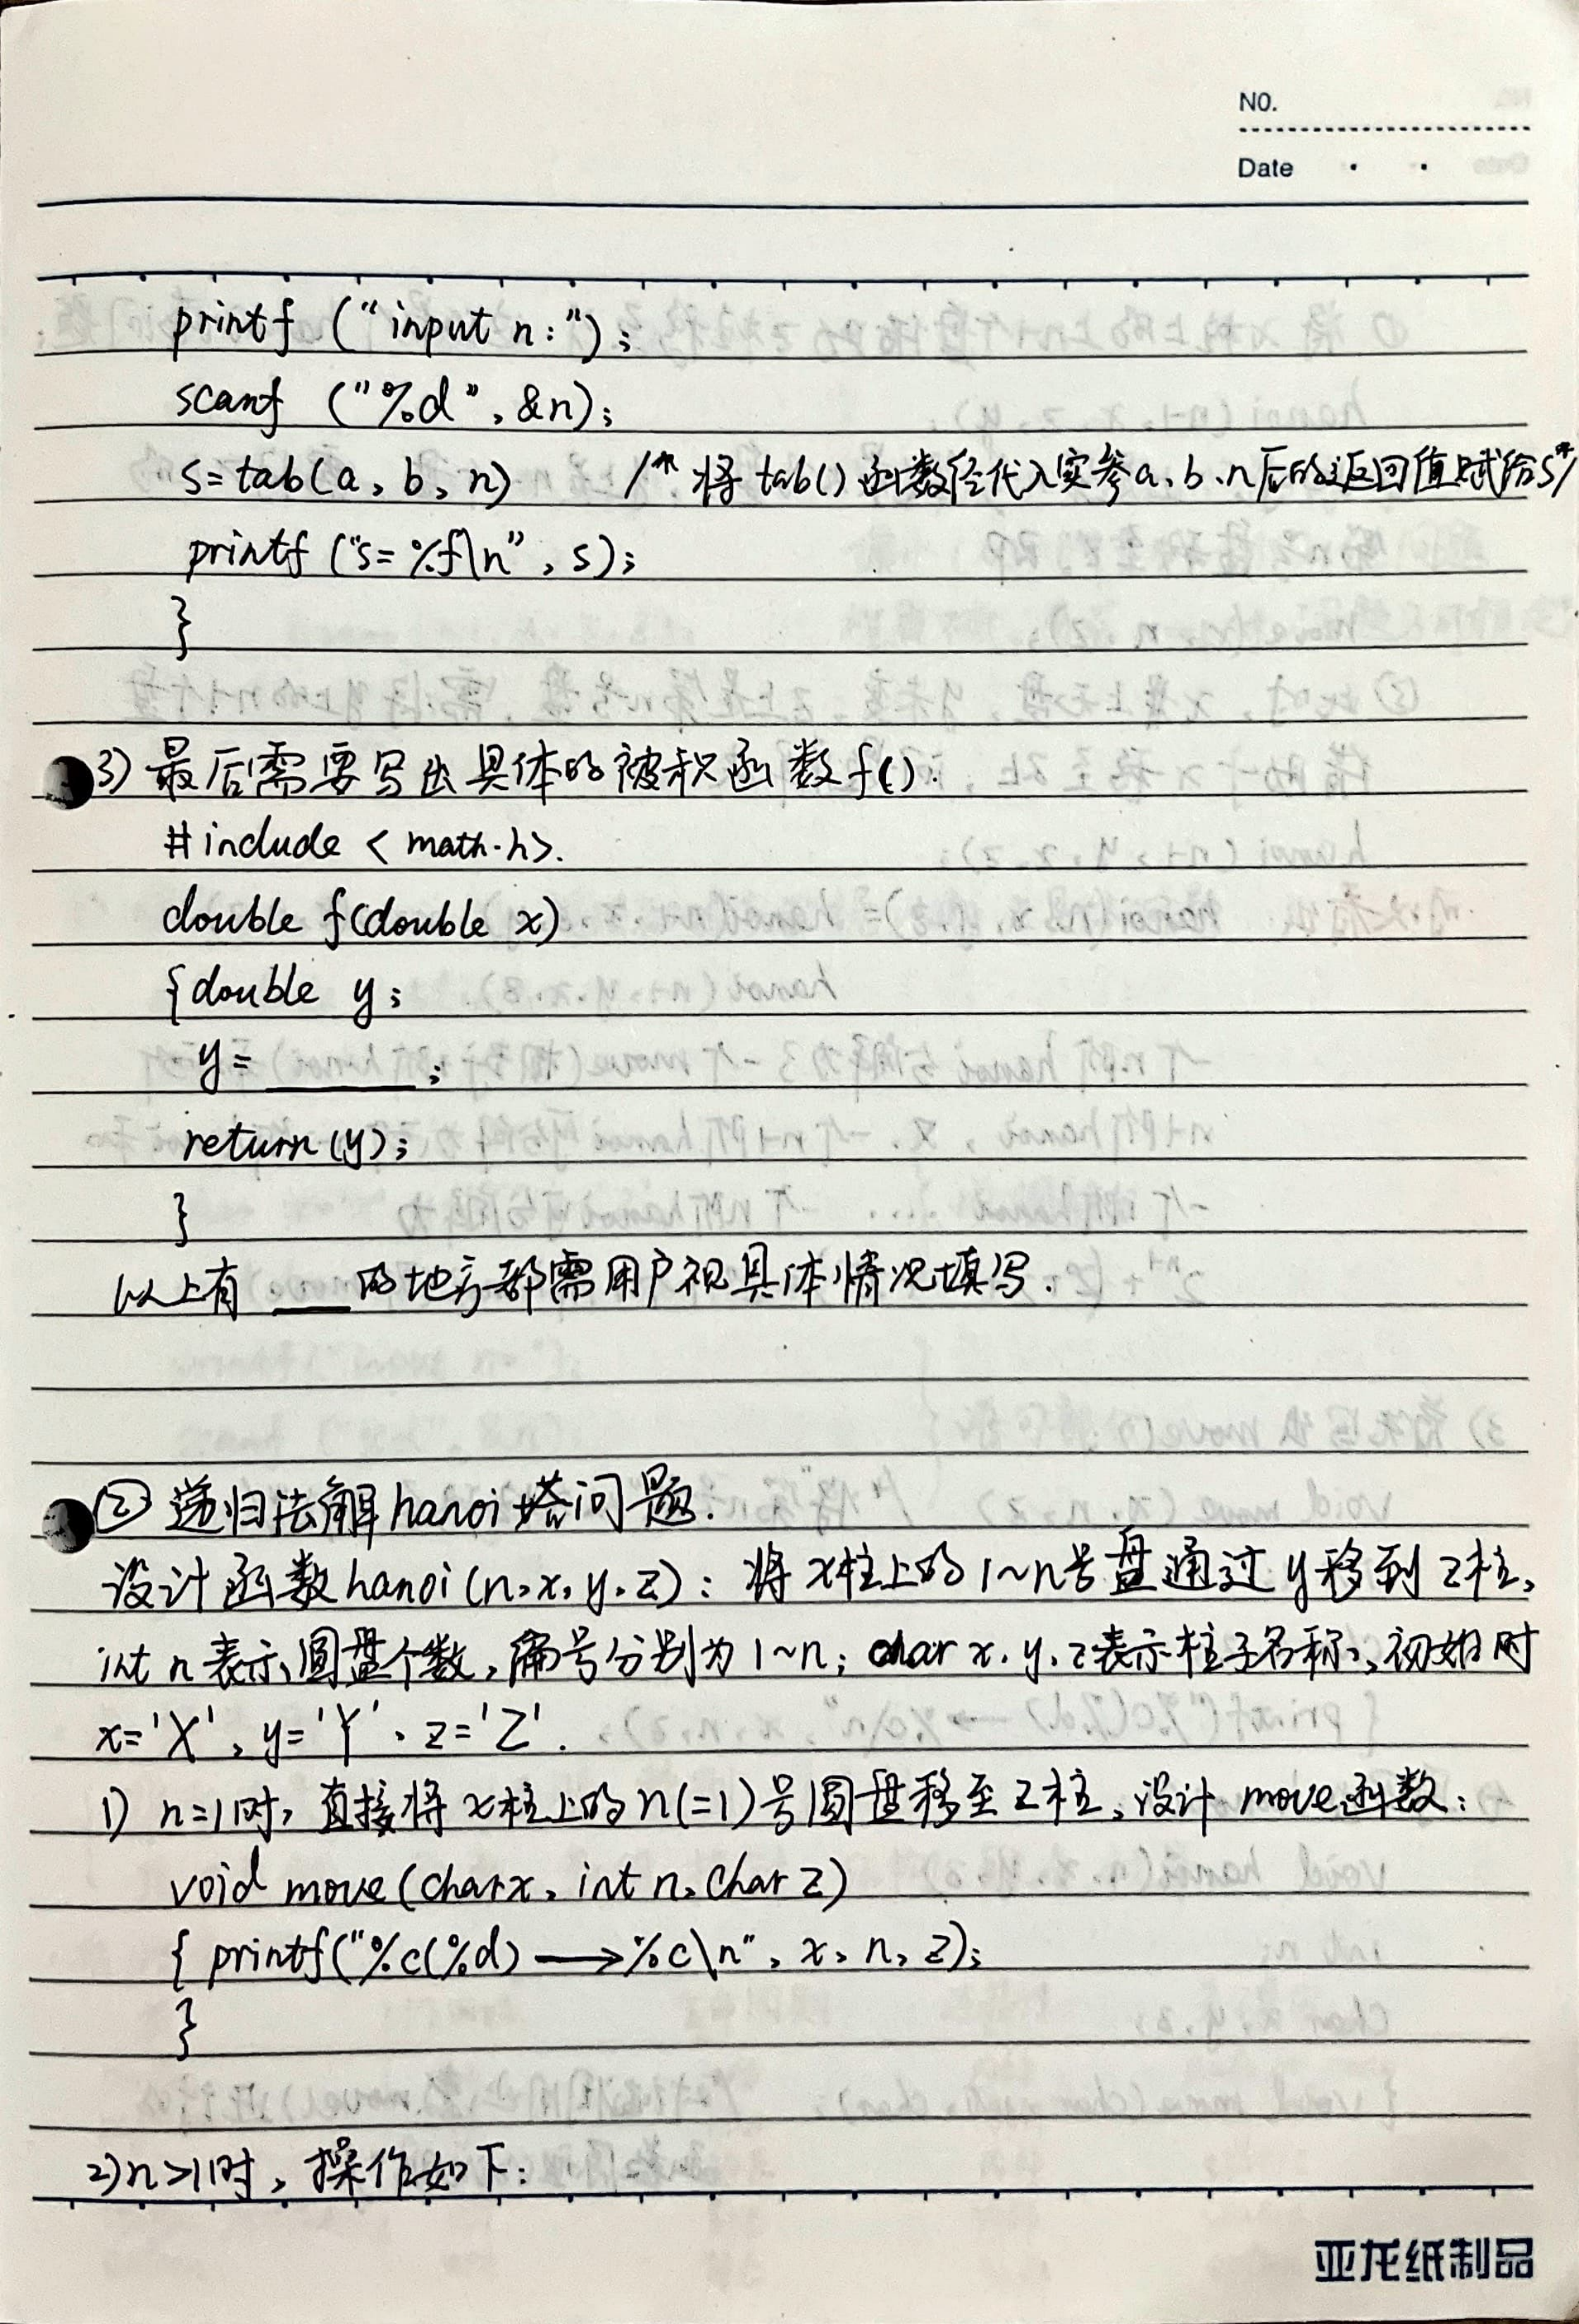 NO.
Date
printf ("input n:");
scanf ("%d", &n);
s=tab(a, b, n) /* 将tab()函数径代入实参a、b、n后的返回值赋给s*/
printf ("s=%f\n", s);
}
3) 最后需要写出具体的被积函数f().
#include <math.h>.
double f(double x)
{double y;
y= ______;
return(y);
}
以上有 ___的地方都需用户视具体情况填写.
② 递归法解hanoi塔问题.
设计函数hanoi(n,x,y,z): 将x柱上的1~n号盘通过y移到z柱,
int n 表示圆盘个数,编号分别为1~n; char x.y.z表示柱子名称,初始时
x='X', y='Y'、z='Z'.
1) n=1时,直接将x柱上的n(=1)号圆盘移至z柱,设计move函数:
void move(char x, int n, char z)
{ printf("%c(%d)⟶%c\n", x, n, z);
}
2)n>1时,操作如下:
亚龙纸制品